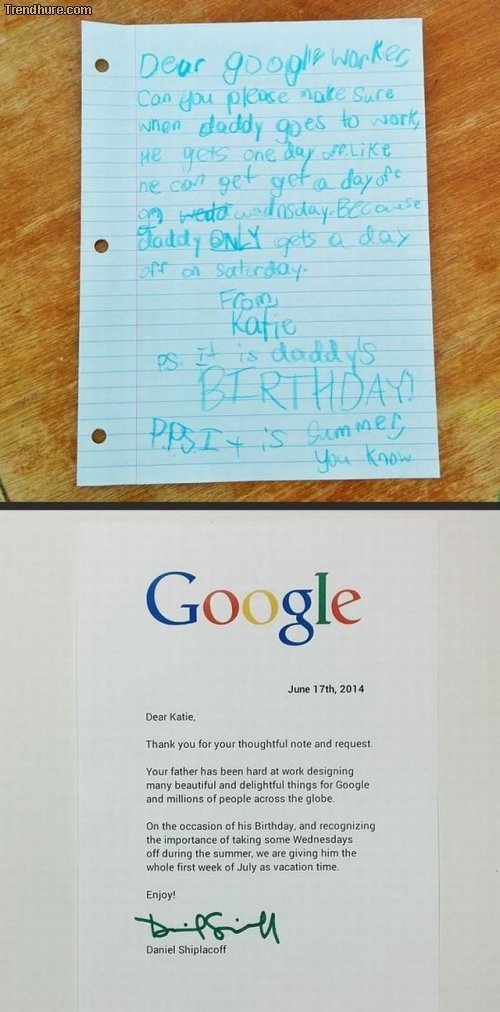 Trendhure.com
Dear google worker,
Can you please make sure
when daddy goes to work,
He gets one day off. Like
he can get get a day off
on wednsday. Because
daddy ONLY gets a day
off on saturday.
From,
Katie
PS. It is daddy's
BIRTHDAY!
P.P.S. It is summer,
you know
Google
June 17th, 2014
Dear Katie,
Thank you for your thoughtful note and request.
Your father has been hard at work designing
many beautiful and delightful things for Google
and millions of people across the globe.
On the occasion of his Birthday, and recognizing
the importance of taking some Wednesdays
off during the summer, we are giving him the
whole first week of July as vacation time.
Enjoy!
Daniel Shiplacoff